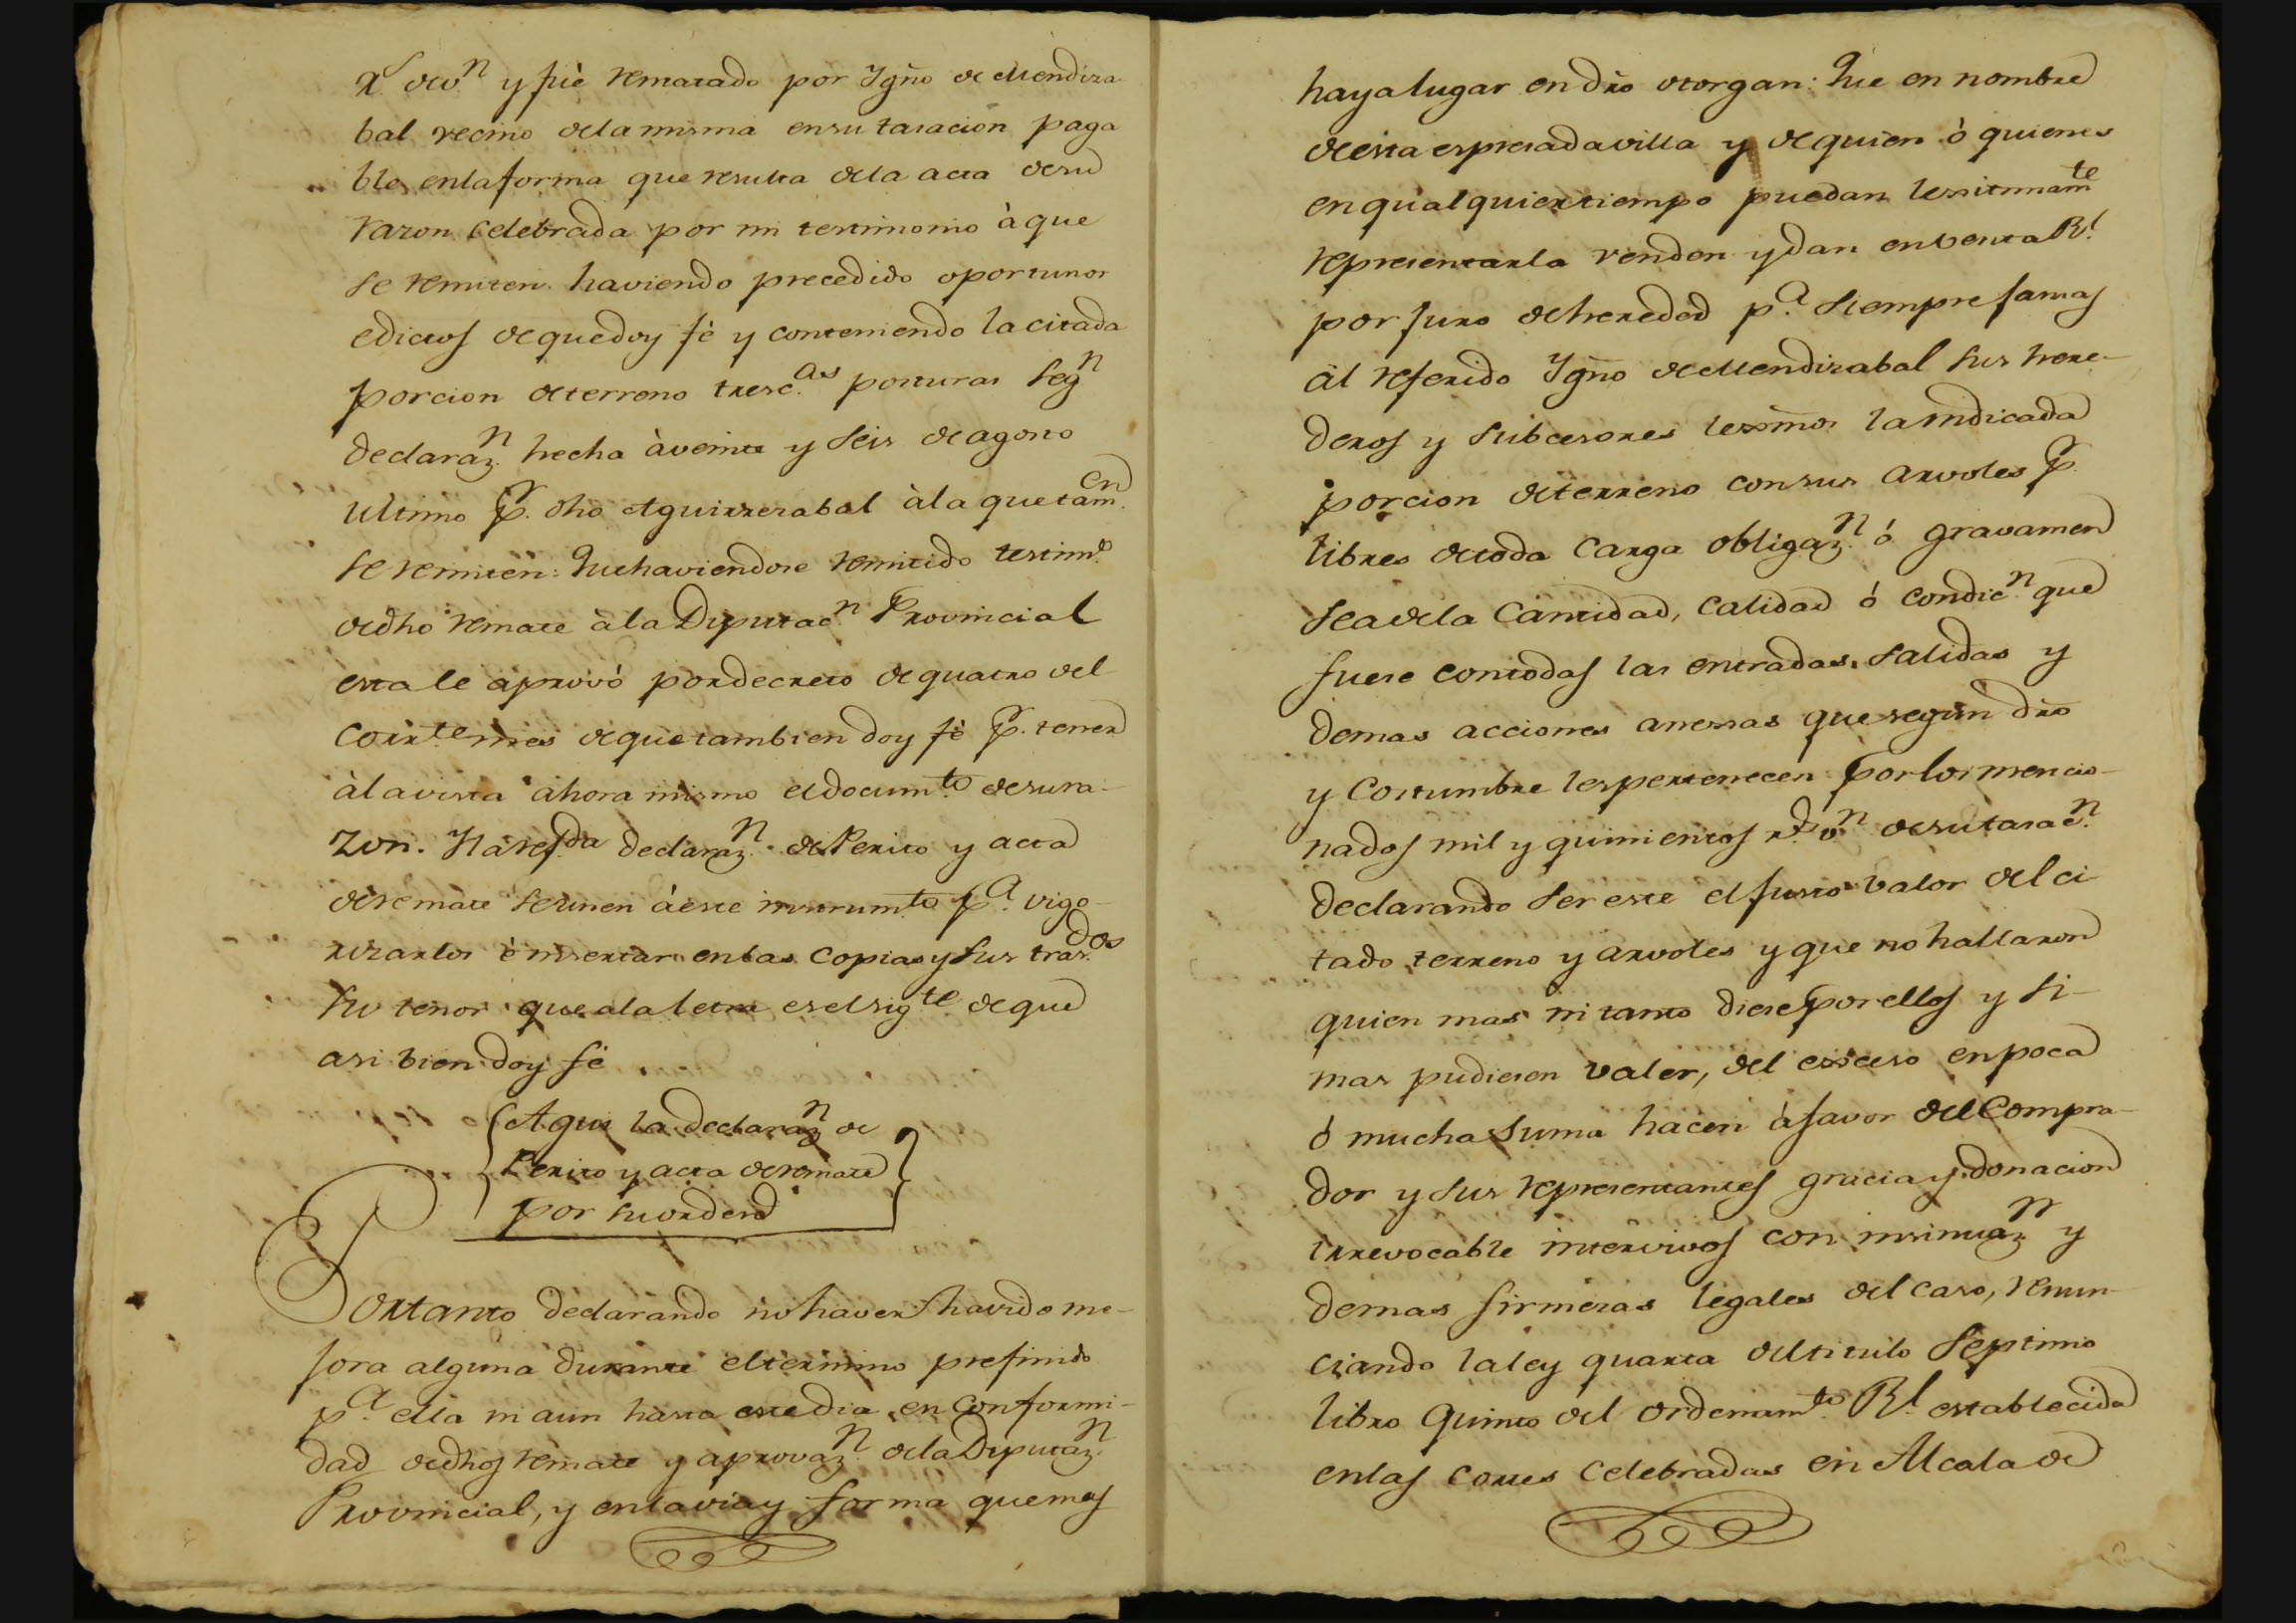 r.^s de v.^n y fué rematado por Ygño de Mendiza
bal vecino dela misma ensu tasacion paga
ble enlaforma que resulta dela acta desu
razon celebrada por mi testimonio à que
se remiten haviendo precedido oportunos
edictos dequedoy fè y conteniendo lacitada
porcion deterreno tresc.^as posturas seg^n
declaraz.^n hecha àveinte y seis deagosto
ultimo p.^r dho Aguirrezabal àla quetam.^en
se remiten: Quehaviendose remitido testim.^o
dedho remate àla Diputac.^n Provincial
estale aprovó pordecreto dequatro del
corr.^te mes dequetambien doy fè p.^r tener
àlavista ahora mismo eldocum.^to desura-
zon. Ylaref.^da declaraz.^n de Perito y acta
deremate seunen áeste instrum.^to p.^a vigo-
rizarlos è insertar enlas copias y sus tras.^dos
su tenor quealaletra eselsig.^te deque
asi bien doy fé.
Aqui la declaraz^n de
Perito y acta deremate
por suorden
Portanto declarando nohaver havido me-
jora alguna durante eltermino prefinido
p.^a ella ni aun hasta estedia, en conformi-
dad dedhos remate y aprovaz.^n dela Diputaz.^n
Provincial, y enlavia y forma quemas
hayalugar en dro otorgan: Que en nombre
deesta espresadavilla y dequien ò quienes
enqualquiertiempo puedan lexitimam^te
representarla venden ydan enventa R.^l
por juro deheredad p.^a siempre jamas
àl referido Ygño deMendizabal sus here-
deros y subcesores lexmos la indicada
porcion deterreno consus arvoles p.^r
libres detoda carga obligaz.^n ó gravamen
seadela cantidad, calidad ó condic.^n que
fuese contodas las entradas, salidas y
demas acciones anexas quesegun dro
y costumbre lespertenecen porlos mencio-
nados mil y quinientos r.^s v.^n desutasac.^n
declarando ser este el justo valor del ci
tado terreno y arvoles y que no hallaron
quien mas ni tanto diese porellos y si
mas pudiesen valer, del exceso enpoca
ó mucha suma hacen àfavor del Compra-
dor y sus representantes gracia y donacion
irrevocable intervivos con insinuaz^n y
demas firmezas legales del caso, renun-
ciando laley quarta deltitulo septimo
libro Quinto del ordenam.^to R.^l establecida
enlas cortes celebradas en Alcala de